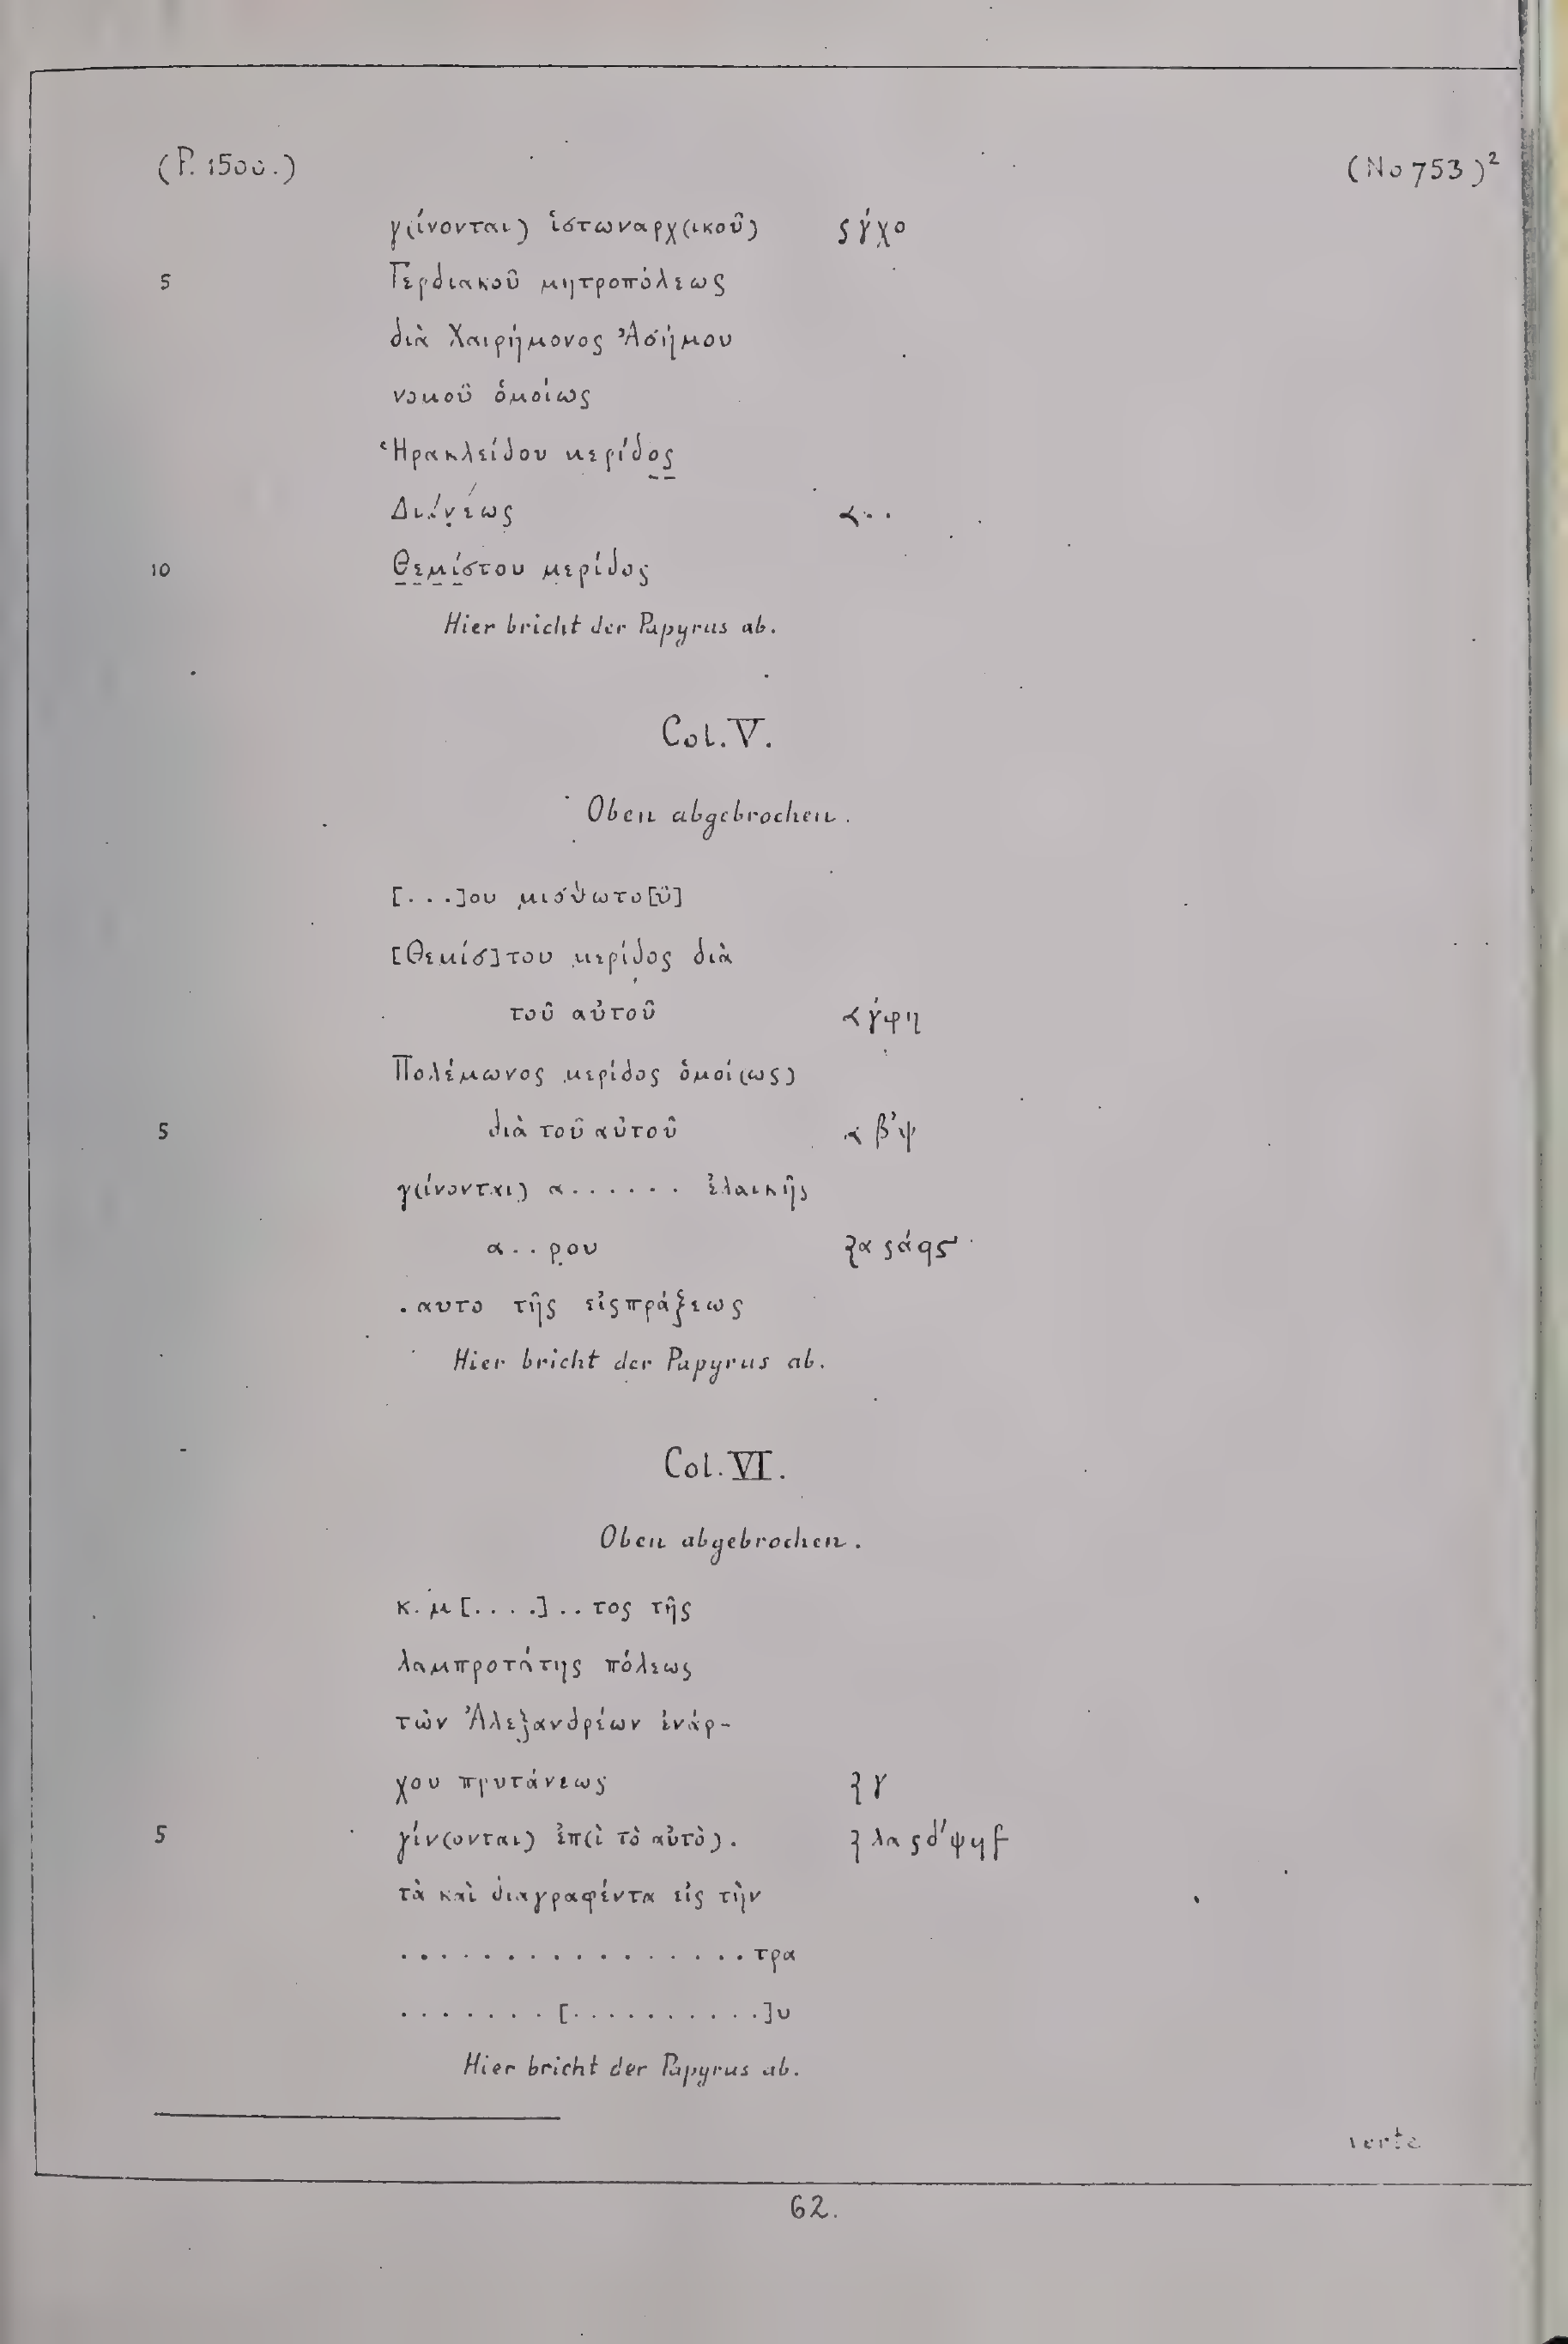 (P. 1500.) (No 753)²
γ(ίνονται) ἱστωναρχ(ικοῦ) ϛ γ́χο
5 Γερδιακοῦ μητροπόλεως
διὰ Χαιρήμονος Ἀσήμου
νομοῦ ὁμοίως
Ἡρακλείδου μερίδος
10 Θεμίστου μερίδος
Hier bricht der Papyrus ab.
Col. V.
Oben abgebrochen.
[...]ου μισθωτο[ῦ]
[Θεμίσ]του μερίδος διὰ
τοῦ αὐτοῦ 𐅵 γ́φη
Πολέμωνος μερίδος ὁμοί(ως)
5 διὰ τοῦ αὐτοῦ 𐅵 β́ψ
γ(ίνονται) α...... ἐλαικῆς
α..ρ̣ου
.αυτο τῆς εἰςπράξεως
Hier bricht der Papyrus ab.
Col. VI.
Oben abgebrochen.
κ.μ[....]..τος τῆς
λαμπροτάτης πόλεως
τῶν Ἀλεξανδρέων ἐνάρ-
χου πρυτάνεως
5 γίν(ονται) ἐπ(ὶ τὸ αὐτὸ).
τὰ καὶ διαγραφέντα εἰς τὴν
.................τρα
.......[..........]υ
Hier bricht der Papyrus ab.
verte
62.